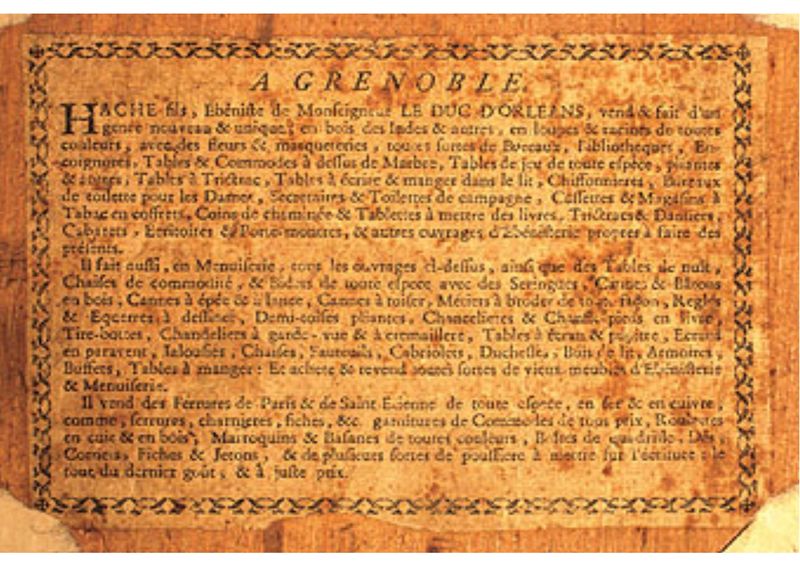 A GRENOBLE.
HACHE fils, Ebéniste de Monseigneur LE DUC D'ORLEANS, vend & fait d'un
genre nouveau & unique, en bois des Indes & autres, en loupes & racines de toutes
couleurs, avec des fleurs & masqueteries, toutes sortes de Bureaux, Bibliotheques, En-
coignures, Tables & Commodes à dessus de Marbre, Tables de jeu de toute espèce, pliantes
& autres, Tables à Trictrac, Tables à écrire & manger dans le lit, Chiffonnieres, Bureaux
de toilette pour les Dames, Secretaires & Toilettes de campagne, Cassettes & Magasins à
Tabac en coffrets, Coins de cheminée & Tablettes à mettre des livres, Trictracs & Damiers,
Cabarets, Ecritoires & Porte-montres, & autres ouvrages d'Ebénisterie propres à faire des
présents.
Il fait aussi, en Menuiserie, tous les ouvrages ci-dessus, ainsi que des Tables de nuit,
Chaises de commodité, & Bidets de toute espece avec des Seringues, Cannes & Bâtons
en bois, Cannes à épée & à lance, Cannes à toiser, Métiers à broder de toute façon, Regles
& Equerres à dessiner, Demi-toises pliantes, Chancelieres & en
Tire-bottes, Chandeliers à garde-vue & à cremaillere, Tables à écran & pupitre, Ecrans
en paravent, Jalousies, Chaises, Fauteuils, Cabriolets, Duchesses, Bois de lit, Armoires,
Buffets, Tables à manger: Et achete & revend toutes sortes de vieux meubles d'Ebénisterie
& Menuiserie.
Il vend des Ferrures de Paris & de Saint Etienne de toute espece, en fer & en cuivre,
comme, serrures, charnieres, fiches, &c. garnitures de Commodes de tous prix, Roulettes
en cuir & en bois, Marroquins & Basanes de toutes couleurs, Boîtes de quadrille, Dés,
Cornets, Fiches & Jetons, & de plusieurs sortes de poussiere à mettre sur l'écriture: le
tout du dernier goût, & à juste prix.